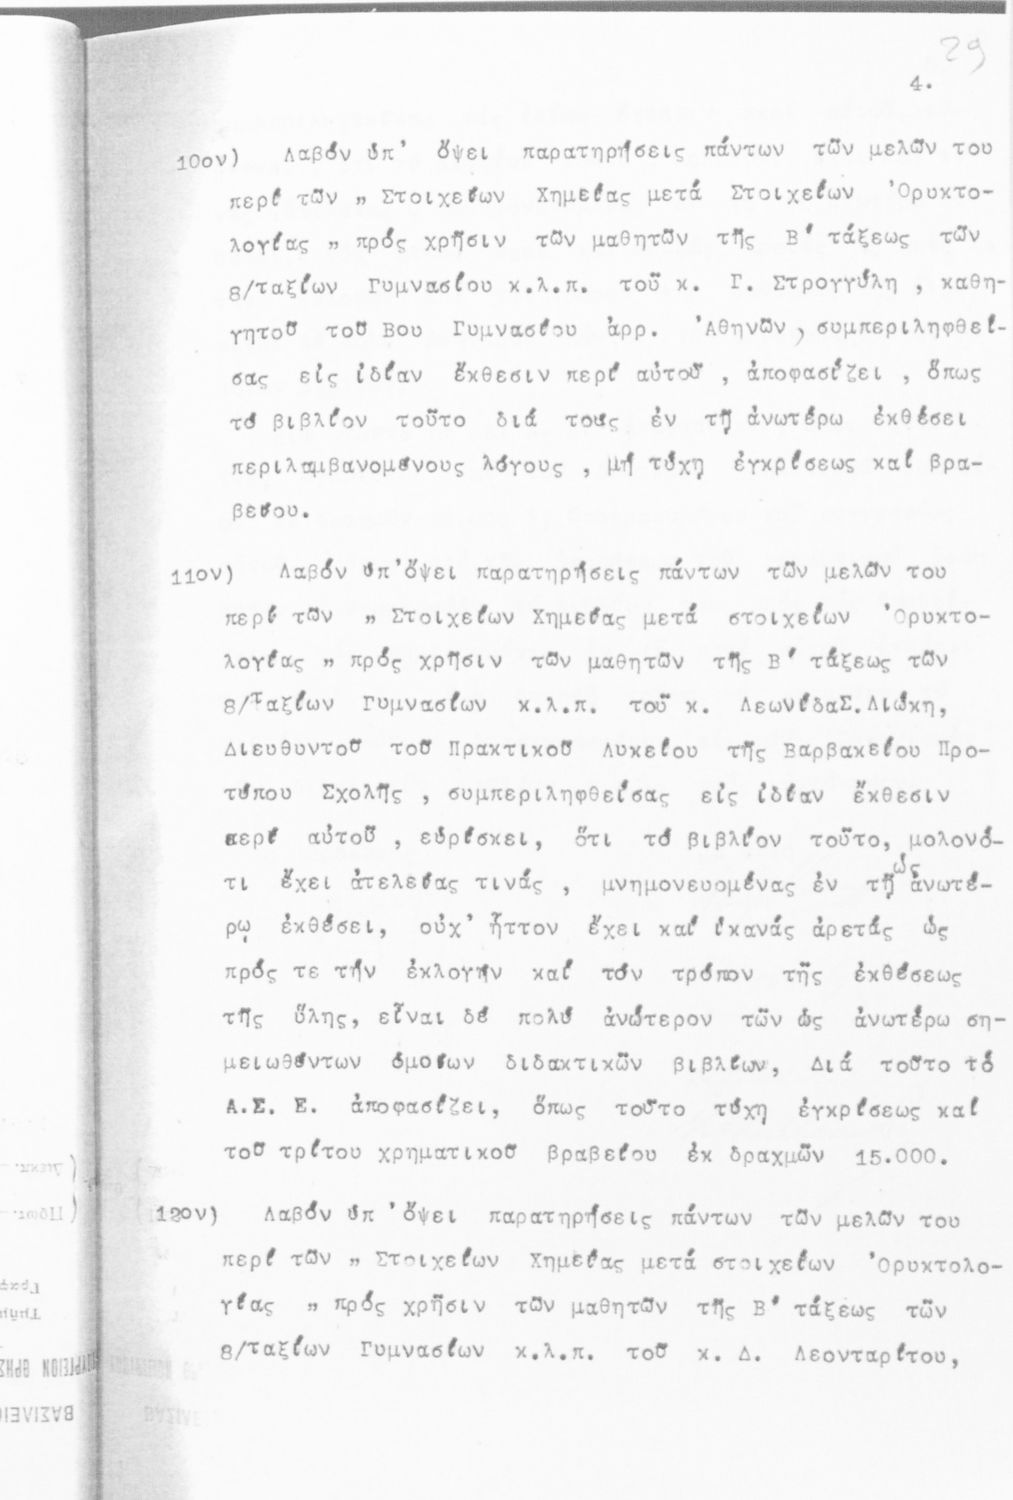 29
4.
10ον) Λαβόν ὑπ' ὄψει παρατηρήσεις πάντων τῶν μελῶν του
περί τῶν „ Στοιχείων Χημείας μετά Στοιχείων Ὀρυκτο-
λογίας „ πρός χρῆσιν τῶν μαθητῶν τῆς Β' τάξεως τῶν
8/ταξίων Γυμνασίου κ.λ.π. τοῦ κ. Γ. Στρογγύλη , καθη-
γητοῦ τοῦ Βου Γυμνασίου ἀρρ. Ἀθηνῶν, συμπεριληφθεί-
σας εἰς ἰδίαν ἔκθεσιν περί αὐτοῦ , ἀποφασίζει , ὅπως
τό βιβλίον τοῦτο διά τους ἐν τῇ ἀνωτέρω ἐκθέσει
περιλαμβανομένους λόγους , μή τύχῃ ἐγκρίσεως καί βρα-
βείου.
11ον) Λαβόν ὑπ'ὄψει παρατηρήσεις πάντων τῶν μελῶν του
περί τῶν „ Στοιχείων Χημείας μετά στοιχείων Ὀρυκτο-
λογίας „ πρός χρῆσιν τῶν μαθητῶν τῆς Β' τάξεως τῶν
8/Ταξίων Γυμνασίων κ.λ.π. τοῦ κ. ΛεωνίδαΣ.Λιώκη,
Διευθυντοῦ τοῦ Πρακτικοῦ Λυκείου τῆς Βαρβακείου Προ-
τύπου Σχολῆς , συμπεριληφθείσας εἰς ἰδίαν ἔκθεσιν
περί αὐτοῦ , εὑρίσκει, ὅτι τό βιβλίον τοῦτο, μολονό-
τι ἔχει ἀτελείας τινάς , μνημονευομένας ἐν τῇ ὡς ἀνωτέ-
ρῳ ἐκθέσει, οὐχ' ἧττον ἔχει καί ἱκανάς ἀρετάς ὡς
πρός τε τήν ἐκλογήν καί τόν τρόπον τῆς ἐκθέσεως
τῆς ὕλης, εἶναι δέ πολύ ἀνώτερον τῶν ὡς ἀνωτέρω ση-
μειωθέντων ὁμοίων διδακτικῶν βιβλίων, Διά τοῦτο τό
Α.Σ. Ε. ἀποφασίζει, ὅπως τοῦτο τύχῃ ἐγκρίσεως καί
τοῦ τρίτου χρηματικοῦ βραβείου ἐκ δραχμῶν 15.000.
12ον) Λαβόν ὑπ 'ὄψει παρατηρήσεις πάντων τῶν μελῶν του
περί τῶν „ Στοιχείων Χημείας μετά στοιχείων Ὀρυκτολο-
γίας „ πρός χρῆσιν τῶν μαθητῶν τῆς Β' τάξεως τῶν
8/ταξίων Γυμνασίων κ.λ.π. τοῦ κ. Δ. Λεονταρίτου,